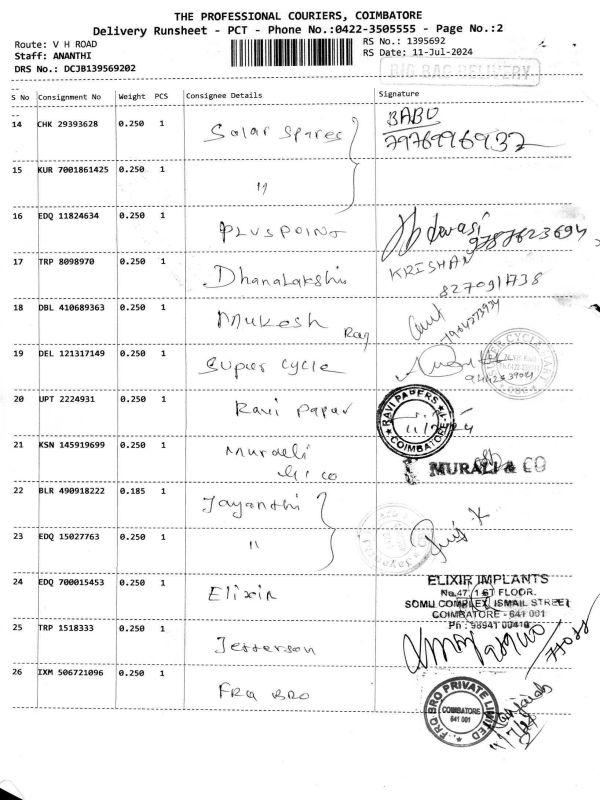 THE PROFESSIONAL COURIERS, COIMBATORE
Delivery Runsheet - PCT - Phone No.:0422-3505555 - Page No.:2
Route: V H ROAD
RS No.: 1395692
Staff: ANANTHI
RS Date: 11-Jul-2024
DRS No.: DCJB139569202
BIG BAG DELIVERY
S No Consignment No Weight PCS Consignee Details Signature
14 CHK 29393628 0.250 1 Solar Spares BABU
7976996937
15 KUR 7001861425 0.250 1 "
16 EDQ 11824634 0.250 1 PLUSPOINT
9787623694
17 TRP 8098970 0.250 1 Dhanalakshi KRISHAN
18 DBL 410689363 0.250 1 Mukesh Raj
19 DEL 121317149 0.250 1 Super Cycle
20 UPT 2224931 0.250 1 Ravi Papar RAVI PAPERS COIMBATORE
21 KSN 145919699 0.250 1 Muraeli MURALI & CO
& co
22 BLR 490918222 0.185 1 Jayanthi
23 EDQ 15027763 0.250 1 "
24 EDQ 700015453 0.250 1 Elixir ELIXIR IMPLANTS
No.47, 1 ST FLOOR.
SOMU COMPLEX, ISMAIL STREET
COIMBATORE - 641 001
Ph : 98941 00410
25 TRP 1518333 0.250 1 Jefferson
26 IXM 506721096 0.250 1 FRQ BRO FRQ BRO PRIVATE LIMITED
COIMBATORE
641 001